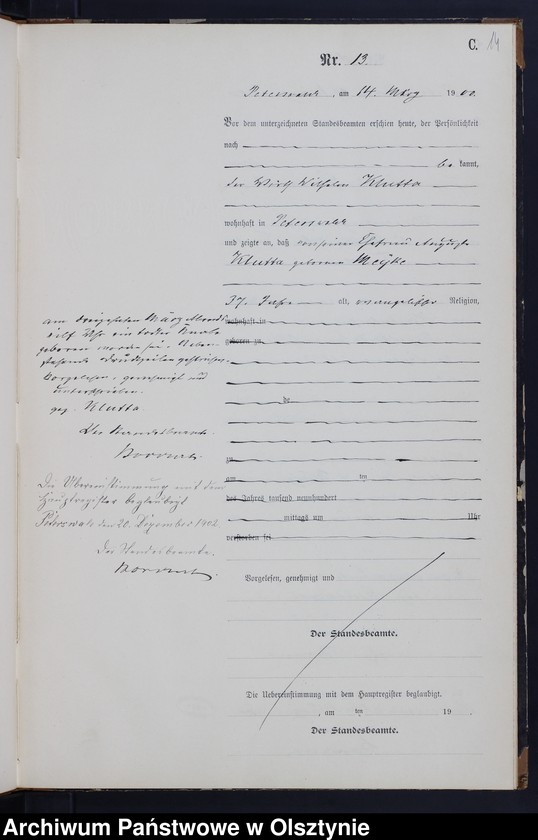 C. 14
Nr. 13.
Peterswalde, am 14. März 1900
Vor dem unterzeichneten Standesbeamten erschien heute, der Persönlichkeit
nach
be kannt,
der Wirth Wilhelm Klutta
wohnhaft in Peterswalde
und zeigte an, daß von seiner Ehefrau Auguste
Klutta geborenen
37 Jahre alt, evangelischer Religion,
wohnhaft in
geboren zu
de
zu
am ten
des Jahres tausend neunhundert
mittags um Uhr
verstorben sei
am dreizehnten März Abends
elf Uhr ein todter Knabe
geboren worde sei. Neben-
stehende Druckzeilen gestrichen.
Vorgelesen, genehmigt und
unterschrieben.
gez. Klutta
Der Standesbeamte.
Die Übereinstimmung mit dem
Hauptregister beglaubigt
Peterswalde den 20. Dezember 1902.
Der Standesbeamte.
Vorgelesen, genehmigt und
Der Standesbeamte.
Die Uebereinstimmung mit dem Hauptregister beglaubigt.
, am ten 19
Der Standesbeamte.
Archiwum Państwowe w Olsztynie